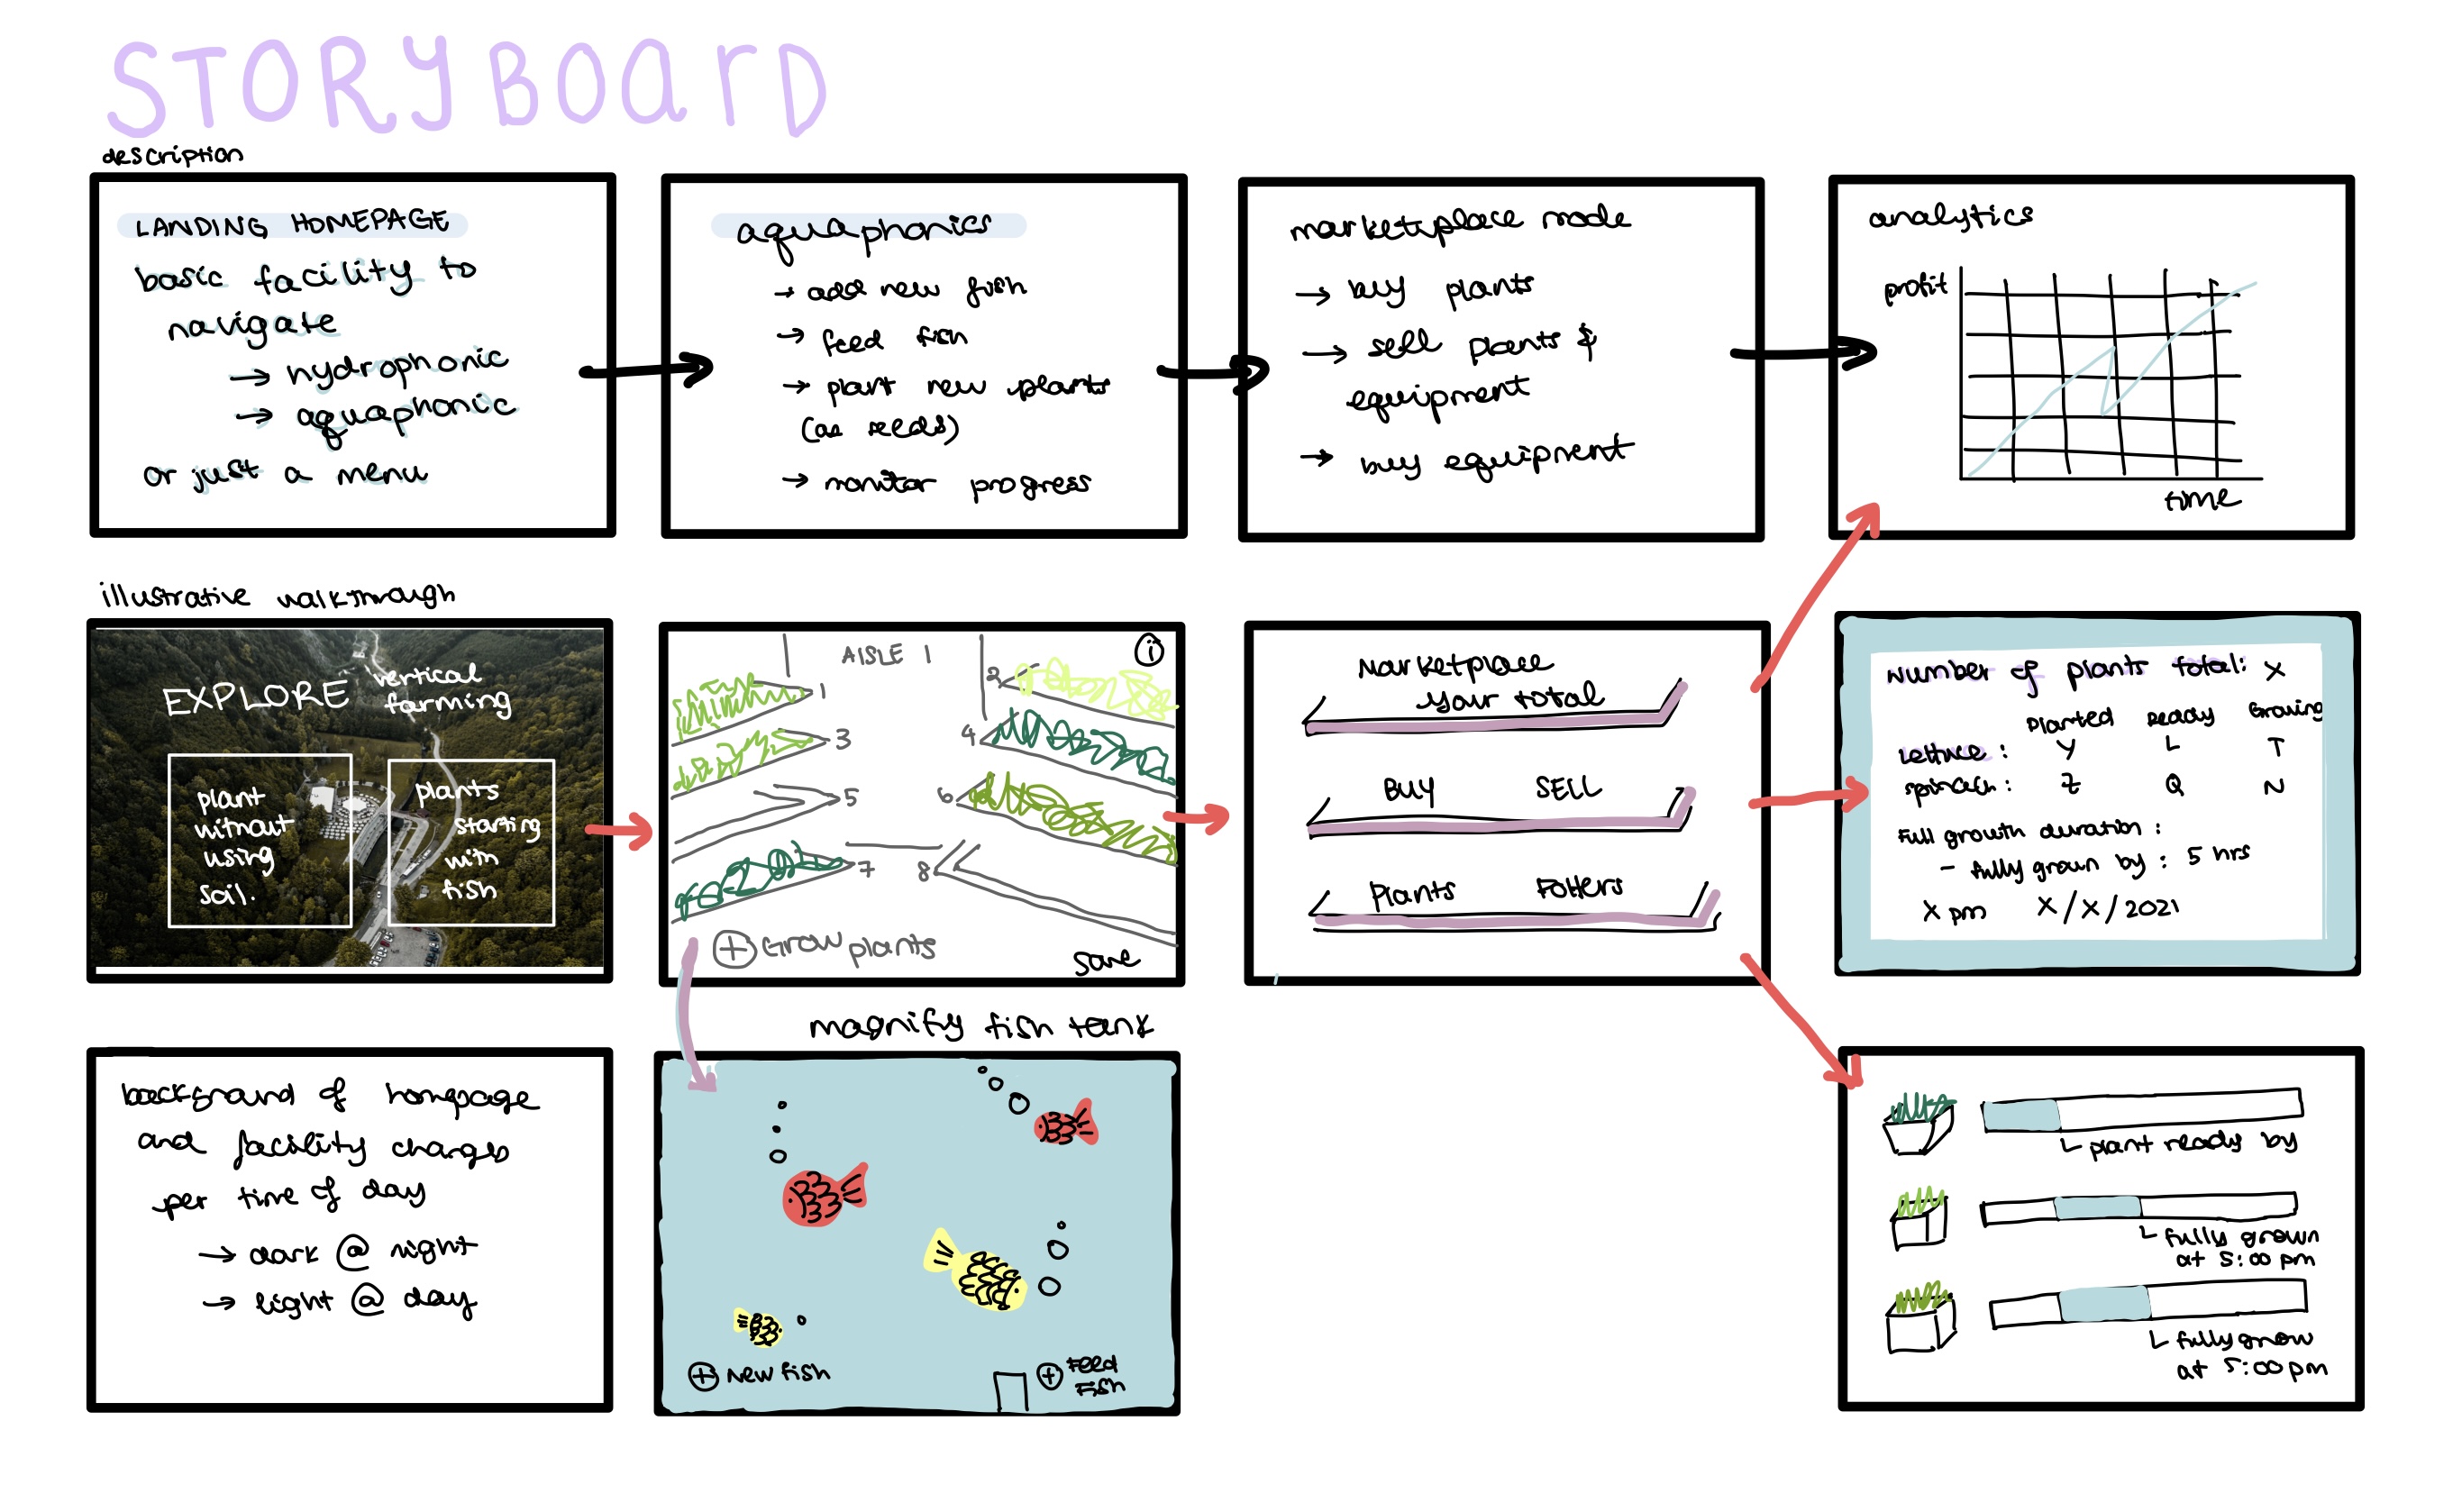 STORYBOARD
description
LANDING HOMEPAGE
basic facility to
navigate
→ hydrophonic
→ aquaphonic
or just a menu
aquaphonics
→ add new fish
→ feed fish
→ plant new plants
(as seeds)
→ monitor progress
marketplace mode
→ buy plants
→ sell plants &
equipment
→ buy equipment
analytics
profit
time
illustrative walkthrough
EXPLORE vertical
farming
plant
without
using
soil.
plants
starting
with
fish
AISLE 1
i
1
2
3
4
5
6
7
8
+ Grow plants
save
Marketplace
your total
BUY SELL
Plants
Number of plants total: X
Planted Ready Growing
lettuce : Y L T
spinach : Z Q N
Full growth duration :
- fully grown by : 5 hrs
X pm X/X/2021
background of homepage
and facility changes
per time of day
→ dark @ night
→ light @ day
magnify fish tank
+ New fish
+ FEED
FISH
plant ready by
fully grown
at 5:00 pm
fully grow
at 5:00 pm